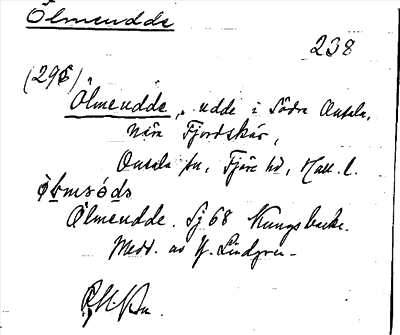 Ölmeudde
238
(296)
Ölmeudde, udde i Södra Onsala,
nära Fjordskär,
Onsala sn, Fjäre hd, Hall. l.
Ölmeudde. Sj 68 Kungsbacka.
Medd. av Hj. Lindgren